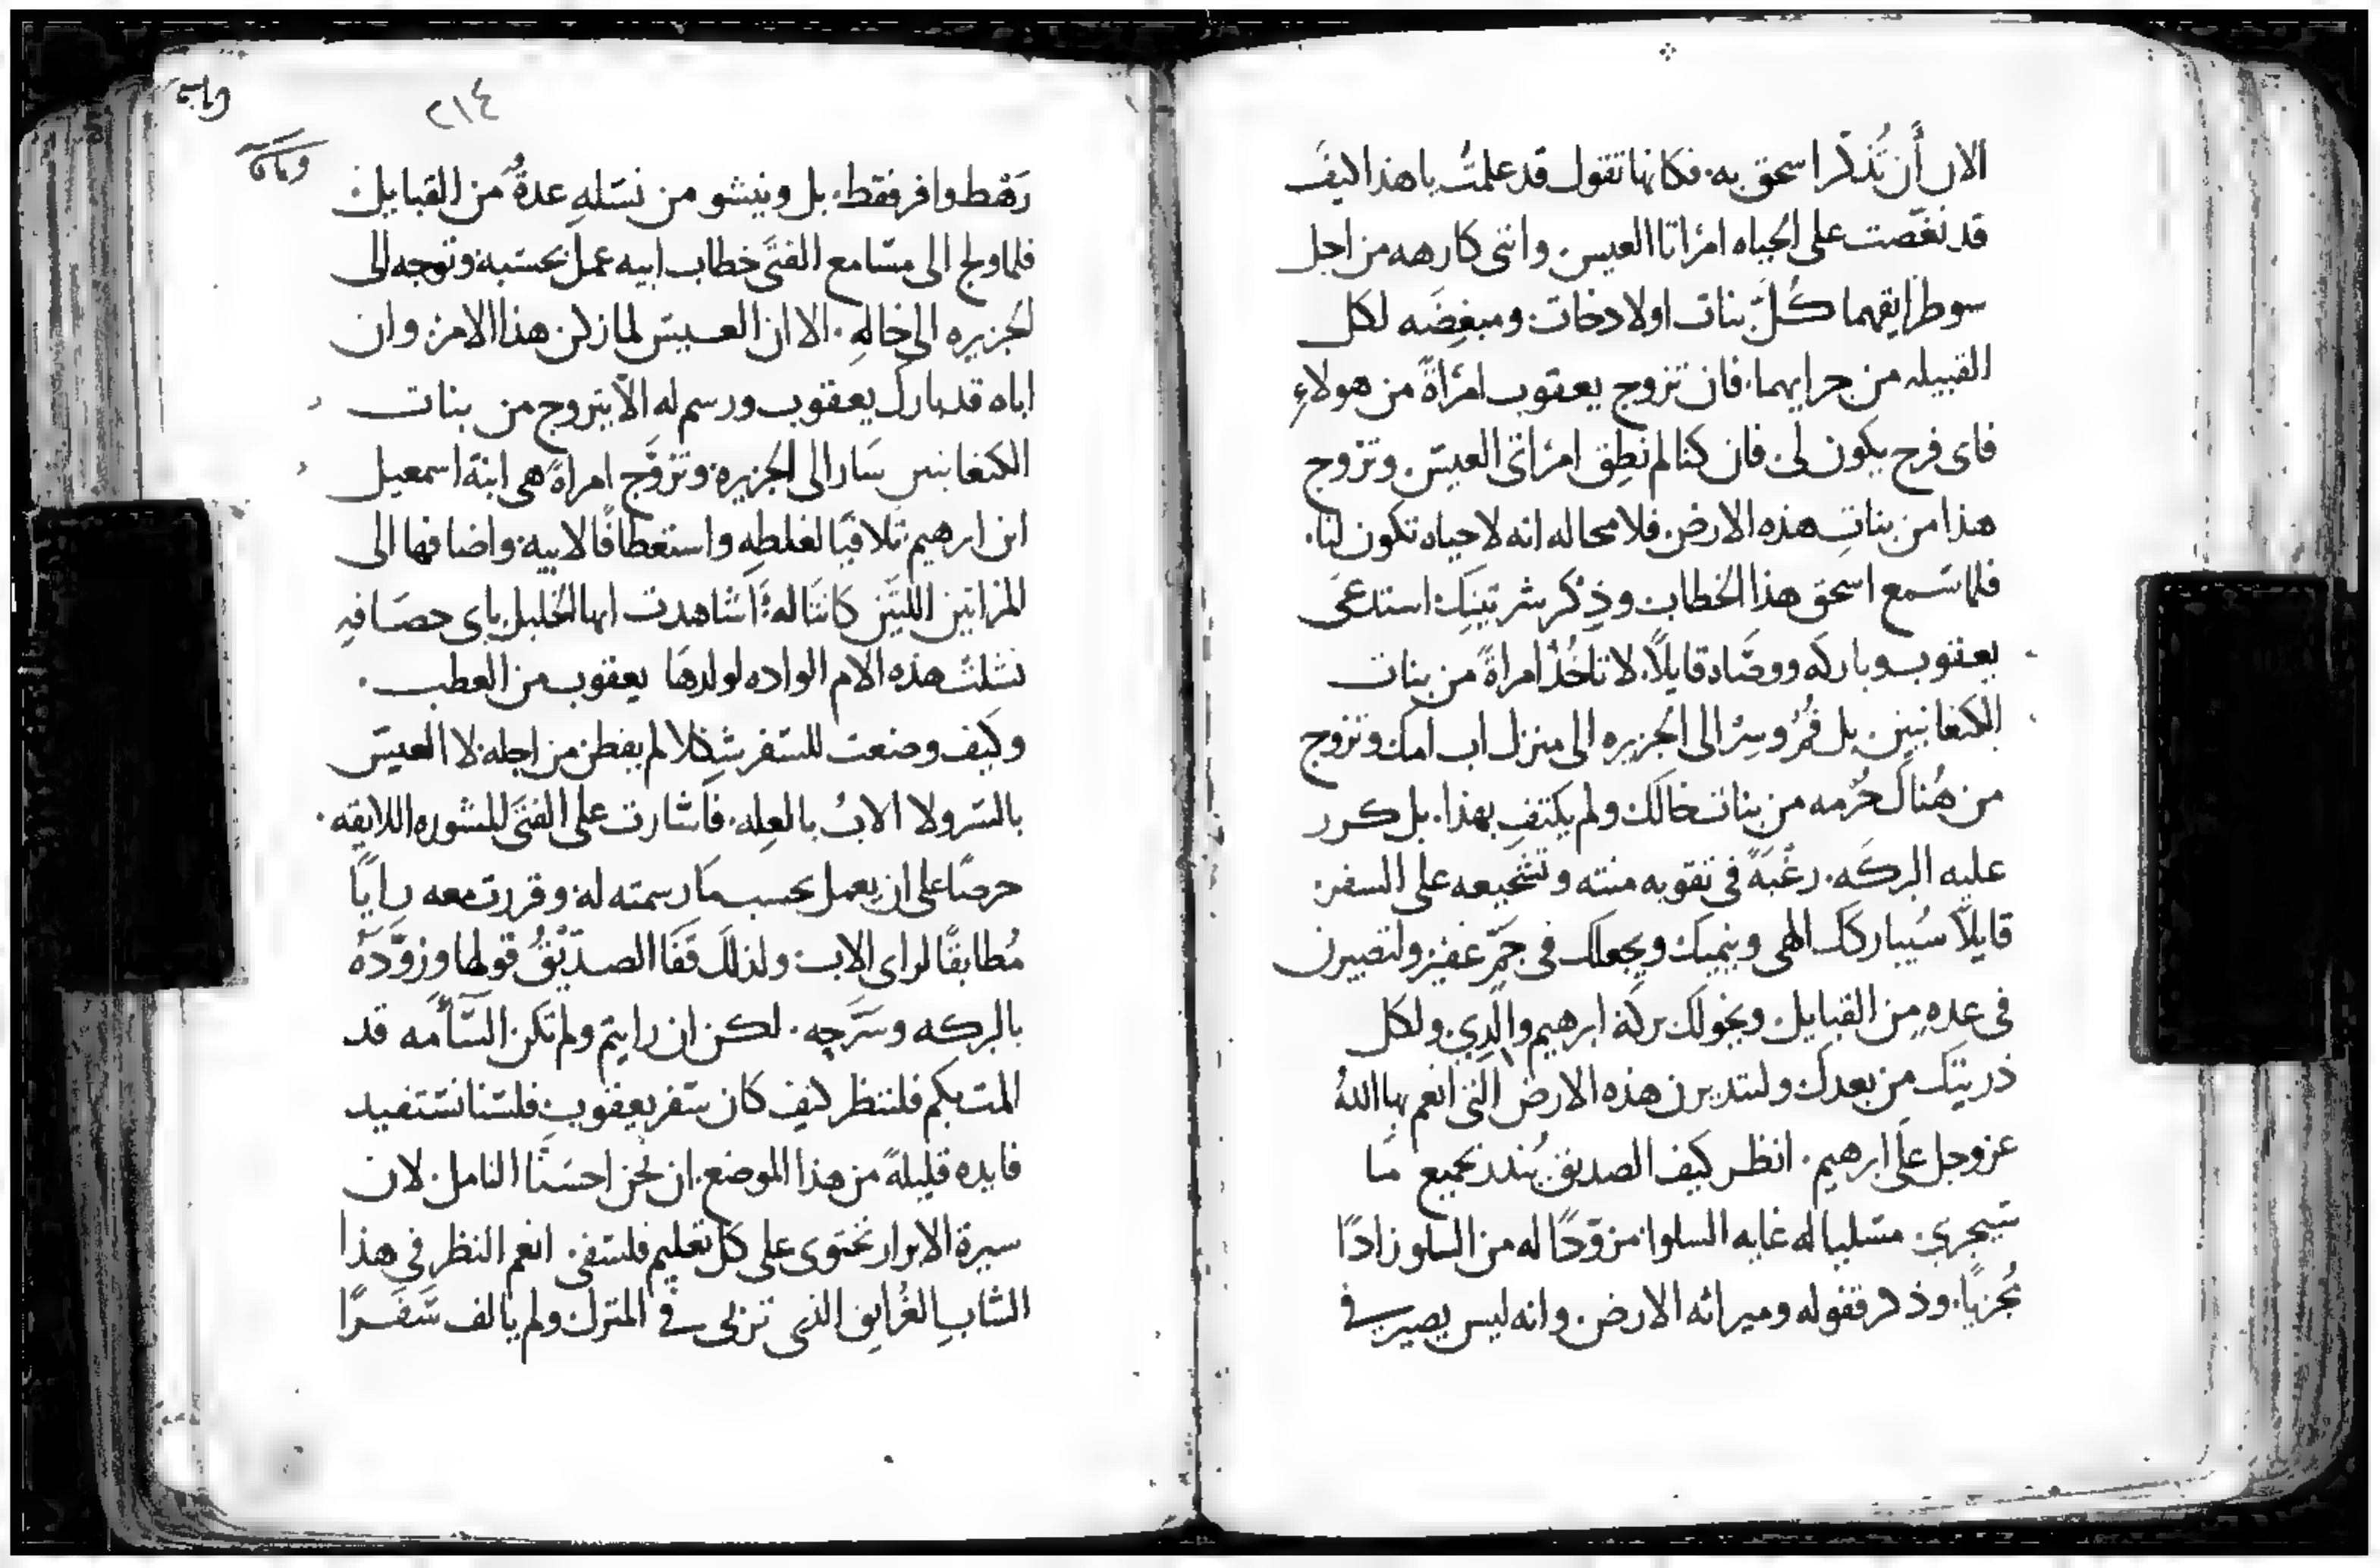 الان أن تُذكر اسحق به. فكانها تقول قد علمتُ ياهذا كيف
قد نغّصت على الحياه امرَاتا العيس. وانني كارهه من اجل
سو طرايقهما كُلَّ بنات اولاد خات. ومبغِضَه لكل
القبيله من جرايهما. فان تزوج يعقوب امرَاةً من هولاءِ
فاى فرح يكون لى. فان كنا لم نطِق امرَاتى العيس. وتزوج
هذا من بناتِ هذه الارض. فلا محاله انه لا حياه تكون لنا.
فلما سَمع اسحق هذا الخطاب وذِكر شر تينِك استدعَى
يعقوب وباركه ووصَّاه قايلاً. لا تاخُذ امراةً من بنات
الكنعانيين. بل قُمْ وسِرْ الى الجزيره الى منزل اب امك وتزوج
من هُناك حُرْمه من بنات خالك. ولم يكتفِ بهذا. بل كرر
عليه البركَه. رغْبَةً في تقويه منته وتشجيعه على السفر.
قايلاً سُيباركك الهى وينميك ويجعلك في جَمّ غفير ولتصيرن
في عدهِ من القبايل. ويخولك بركة ابرهيم والدي. ولكل
ذريتك من بعدك. ولتدبرن هذه الارض التى انعم بها اللهُ
عزوجل على ابرهيم. انظر كيف الصديق يُنذر بجميع ما
سَيجري. مسَليا له غايه السلوا. مزوّدًا له من السلو زادًا
مُجزيًا. وذكر قفوله وميراثه الارض. وانه ليس يصير في
٢١٤
وقاية
رَهْط وافر فقط. بل وينشو من نسَلهِ عدةُ من القبايل.
فلما ولج الى مسَامع الفتَى خطاب ابيه عمل بحسَبه. وتوجه الى
الجزيره الى خالهِ. الا ان العيس لما زكن هذا الامر. وان
اباه قد بارك يعقوب ورسم له الاّ يتزوج من بنات
الكنعانيين سَار الى الجزيره. وتزوَّج امراةً هى ابنة اسمعيل
ابن ابرهيم. تلافيًا لغلطهِ واستعطافًا لابيه. واضافها الى
المراتين اللتَين كانتَا له. اشاهدت ايها الخليل باى حصَافه
نشلت هذه الام الواده لولدها يعقوب من العطب.
وكيف وضعت للسَفر شكلا لم يفطن من اجله لا العيسَ
بالسَر ولا الابُ بالعِله. فاشارت على الفتَى المشوره اللايقه.
حرصًا على ان يعمل بحسب ما رسمته له. وقررت معه رايًا
مُطابقًا لراى الاب. ولذلك قَفَا الصدّيْقُ قولها وزوَّدَهَ
بالبركه وسَرَّحه. لكن ان رايتم ولم تكن السَّأمَه قد
المت بكم فلننظر كيف كان سَفر يعقوب. فلسَنا نسَتفيد
فايده قليلةً من هذا الموضع. ان نحن احسَنّا التامل. لان
سيرة الابرار تحتوى على كل تعليم فلسَفى. انعم النظر في هذا
الشاب الغُرانق الذى تربى في المترل ولم يالف سَفَرًا